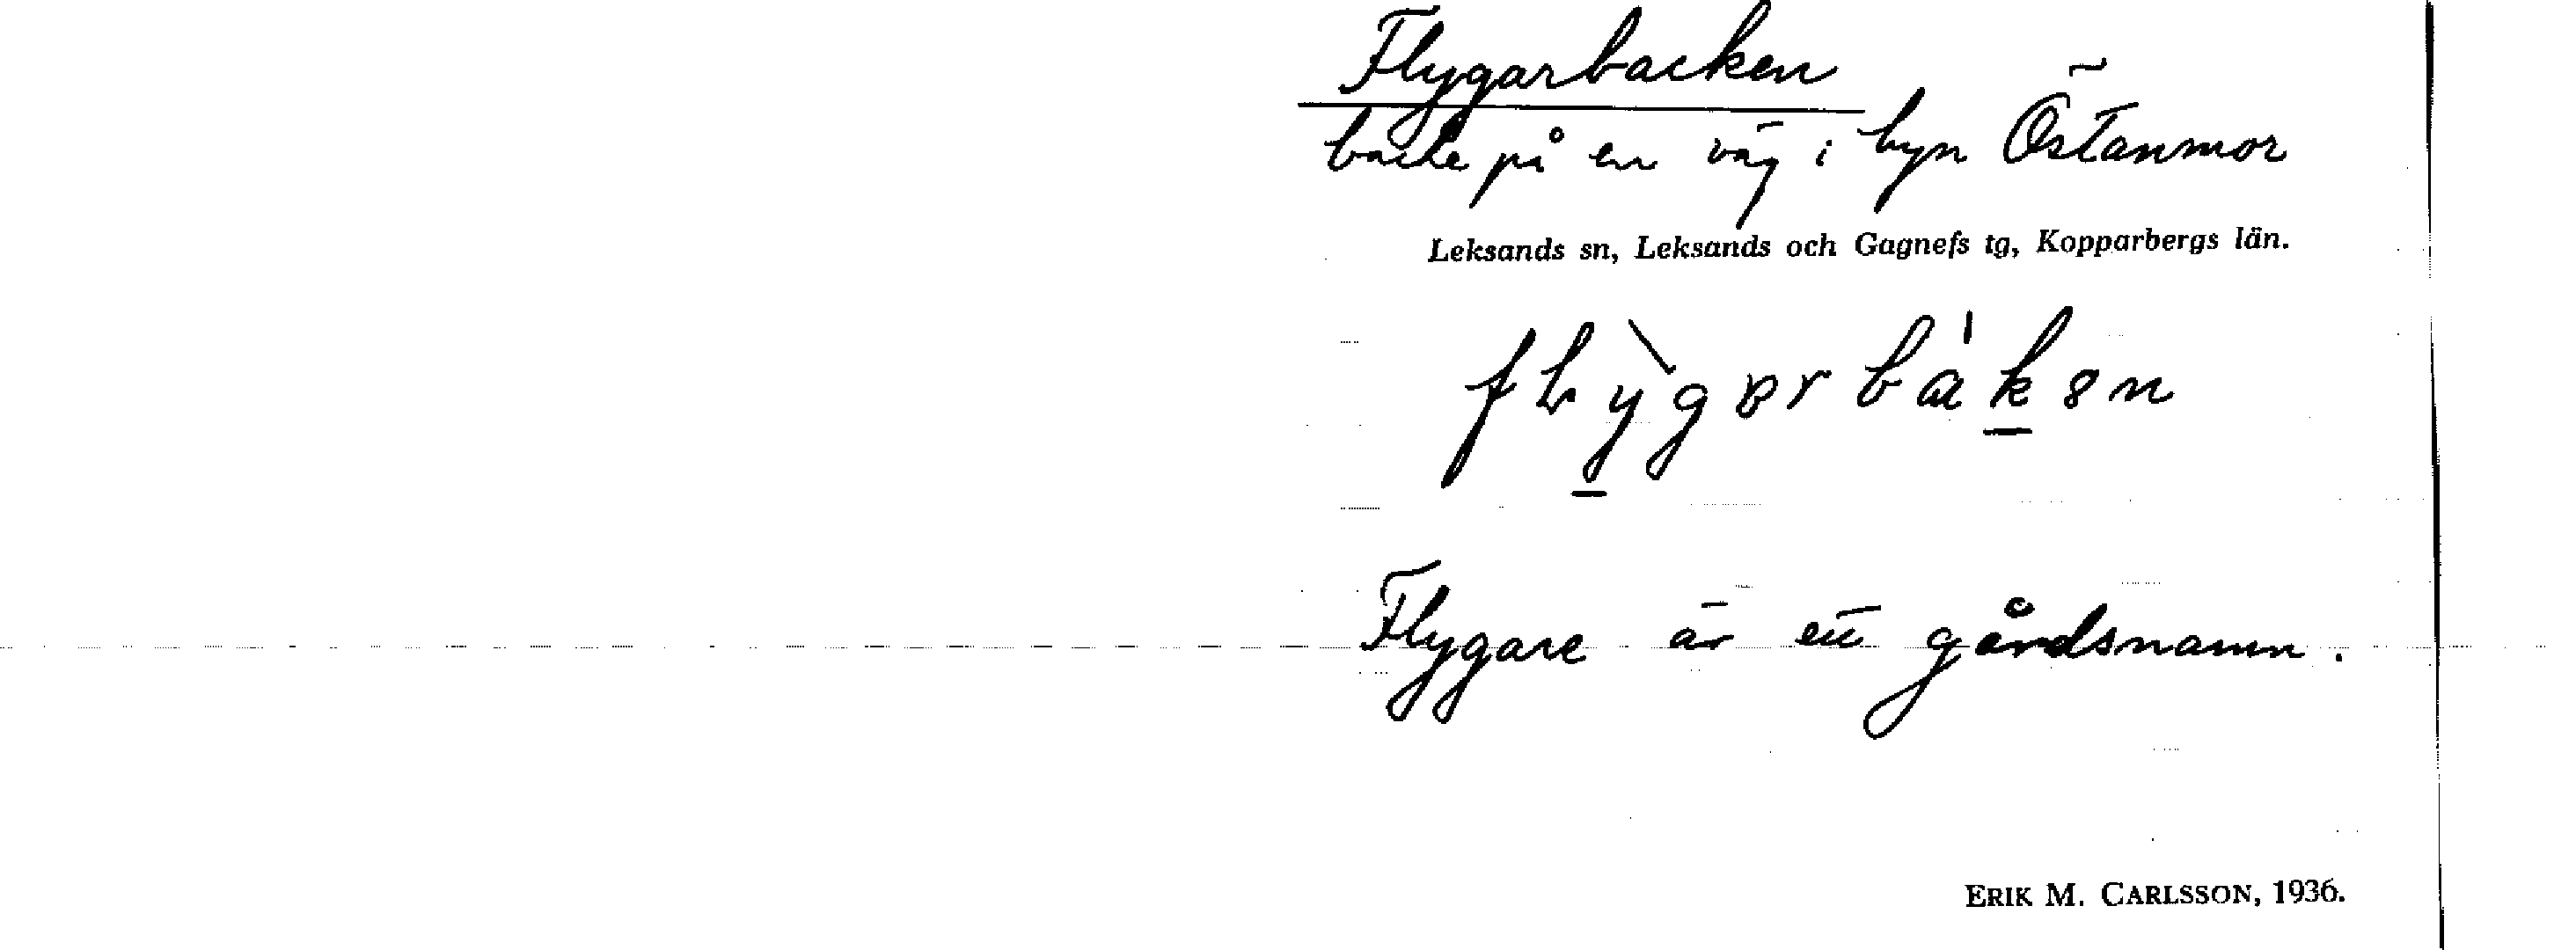 Flygarbacken
backe på en väg i byn Östanmor
Leksands sn, Leksands och Gagnefs tg, Kopparbergs län.
Flygare är ett gårdsnamn.
ERIK M. CARLSSON, 1936.